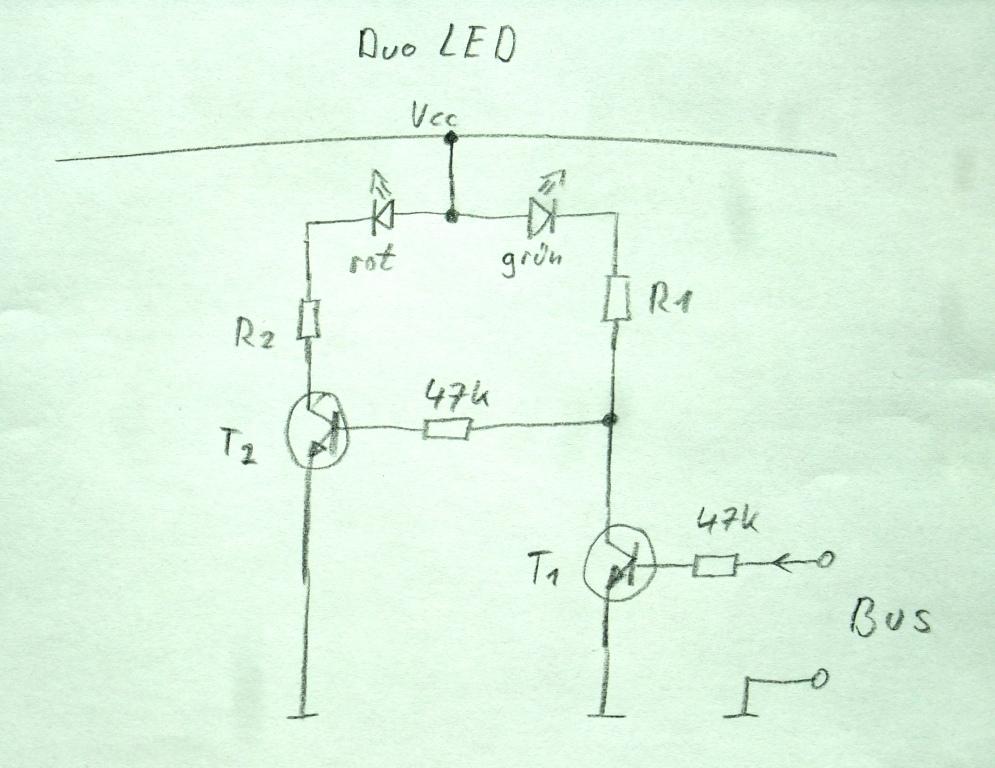 Duo LED
Vcc
rot
grün
R2
R1
47k
T2
47k
T1
Bus